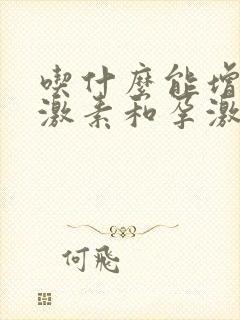 喫什麼能增
激素和孕激
何飛